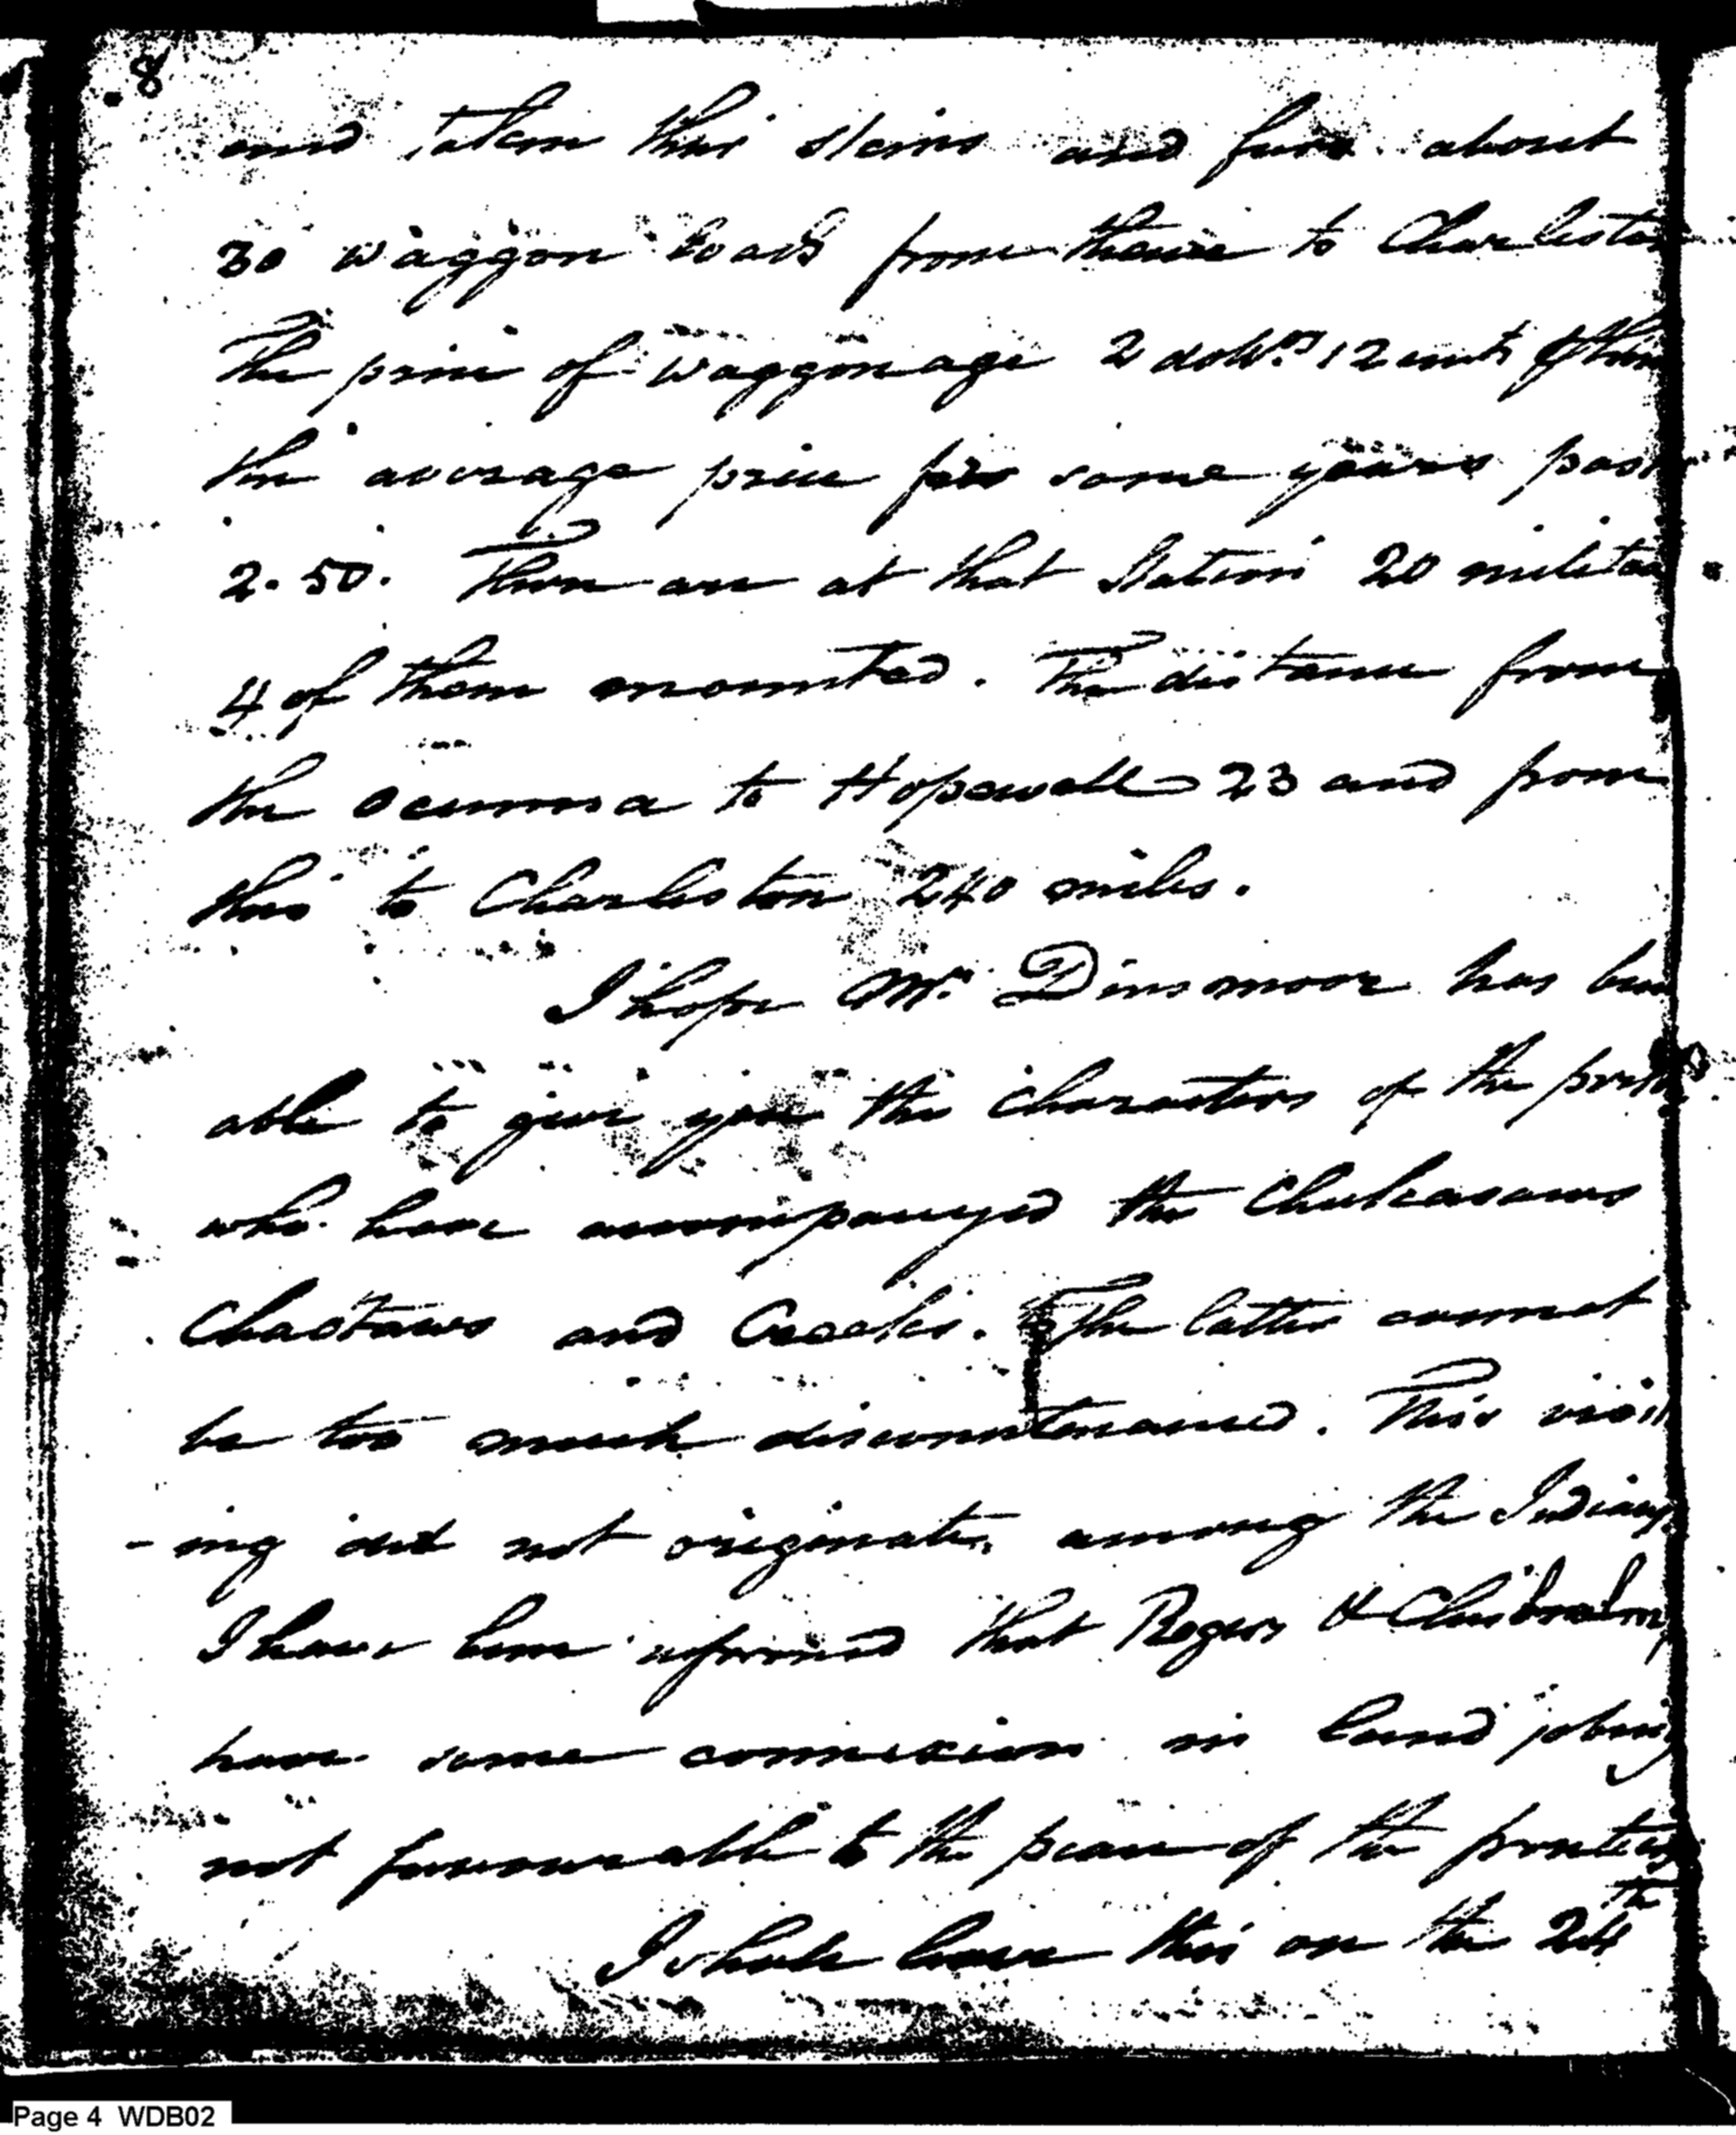 8
and taken their skins and furs about
30 waggon loads from thence to Charleston
The price of waggonage 2 doll.rs 12 cents
the average price for some years past
2.50. There are at that Station 20 militar
4 of them mounted. The distance from
the Ocunna to Hopewell 23 and from
this to Charleston 240 miles.
I hope Mr. Dinsmoor has been
able to give you the characters of the
who have accompanyed the Chickasaws
Chactaws and Creeks. The latter cannot
be too much discountenanced. This visit
-ing did not originate, among the Indians
I have been informed that Rogers & Chisholm,
have some connexion in land jobing
not favourable to the peace of the frontiers
I shall leave this on the 24th
Page 4 WDB02